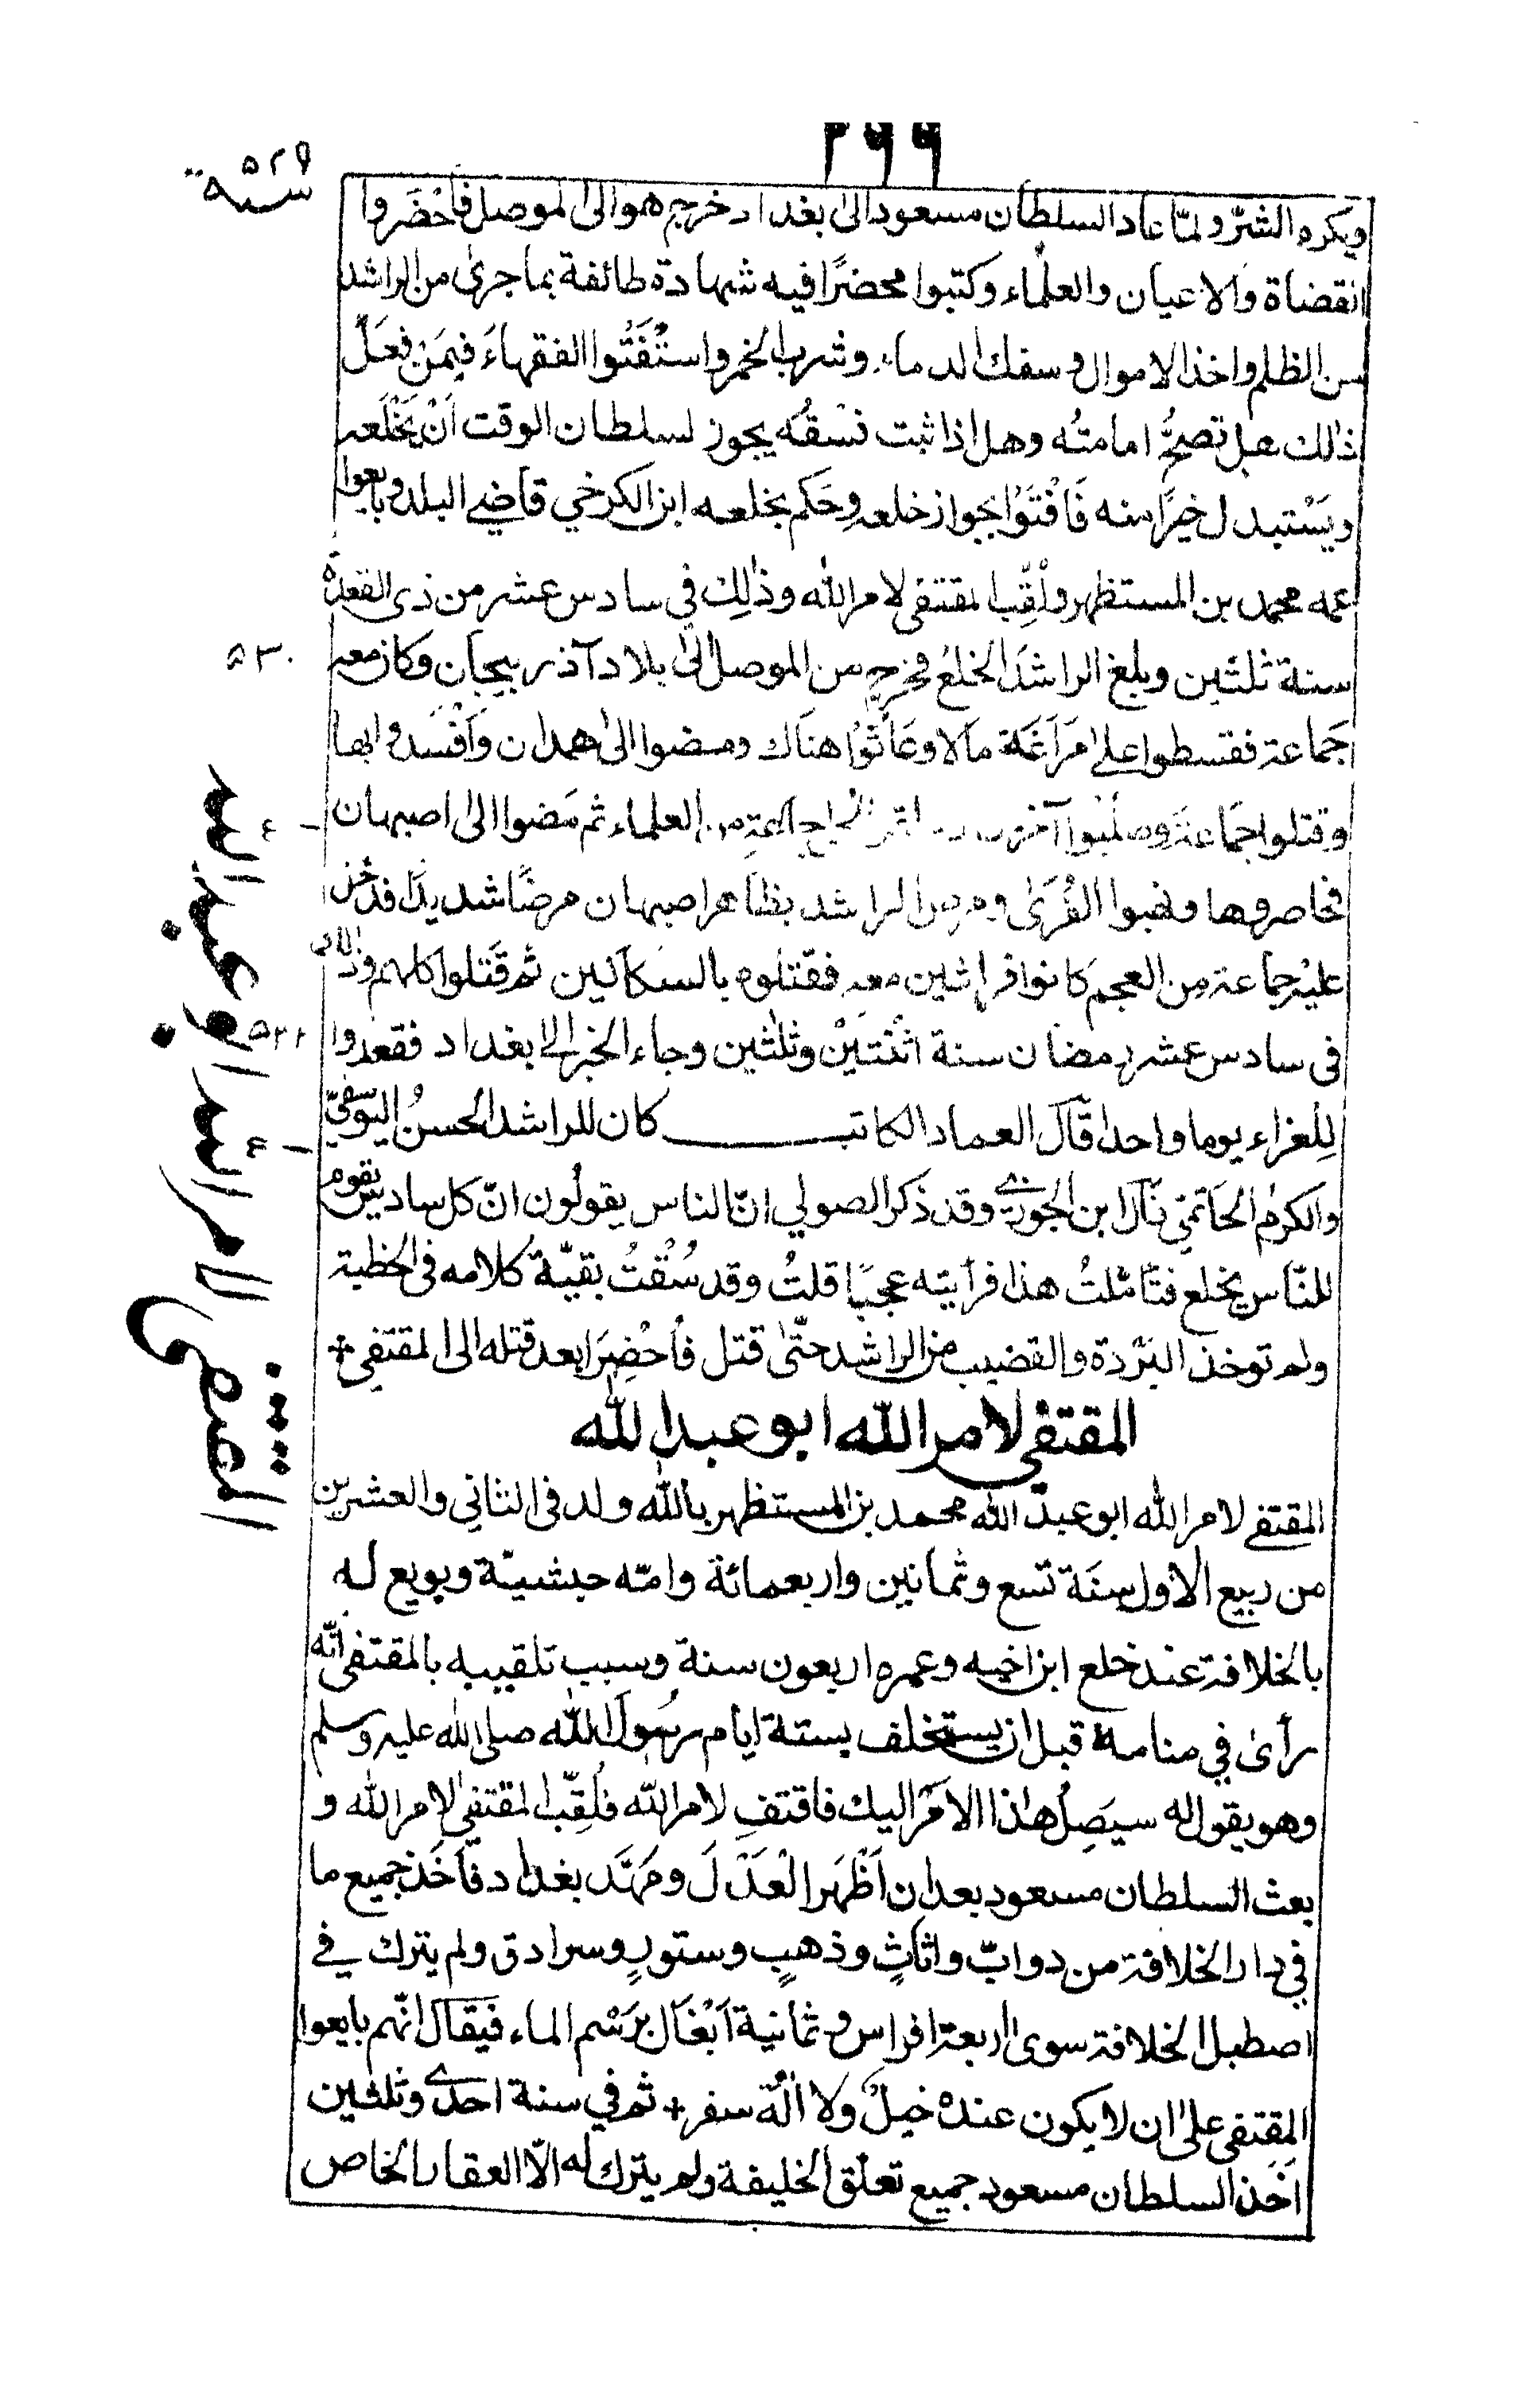 ٢٩٩
سنة ٥٢٩
ويكره الشرّ ولمّا عاد السلطان مسعود الىٰ بغداد خرج هو الى الموصل فاَحْضَروا
القضاة والاعيان والعلماء وكتبوا محضرًا فيه شهادة طائفة بما جرىٰ من الراشد
من الظلم واخذ الاموال وسفك الدماء وشرب الخمر واستُفتُوا الفقهاءَ فيمَن فعَل
ذٰلك هل تصحُّ امامتُه وهل اذا ثبت فسْقُه يجوز لسلطان الوقت اَنْ يَخْلَعه
ويَسْتبدل خيرًا منه فَافْتَوْا بجواز خلعه وحَكم بخلعه ابن الكرخي قاضي البلد وبايعوا
عمه محمد بن المستظهر ولُقِّب المقتفى لامر الله وذٰلك في سادس عشر من ذى القعدة
سنة ثلٰثين وبلغ الراشدَ الخلعُ فخرج من الموصل الىٰ بلاد آذربيجان وكان معه
٥٣٠
جَماعة فقسطوا علىٰ مَرَاغَة مالا وعَاثُوْا هنَاك ومضوا الىٰ همدان واَفْسَدوا بها
وقتلوا جمَاعةَ وصلَبُوا آخرين العلماء ثم مَضوا الى اصبهان
فحاصروها ونهبوا القُرىٰ ومرض الراشد بظاهر اصبهان مرضًا شديدًا فدخل
عليه جماعة من العجم كانوا فراشين معه فقتلوه بالسكاكين ثم قُتلوا كلهم وذٰلك
فى سادس عشر رمضان سنة اثْنتَيْنْ وثلٰثين وجاء الخبر الى بغداد فقعدوا
٥٣٢
لِلعزاء يوما واحدا قال العماد الكاتب كان للراشد الحسنُ اليوسفيّ
والكرمُ الحَاتمىّ قال ابن الجوزي وقد ذكر الصولي انّ الناس يقولُون انّ كل سادس يقوم
للنّاس يخلع فتأمّلتُ هذا فرأيته عجبًا قلتُ وقد سُقْتُ بقيّة كلامه فى الخطبة
ولم توخذ البُرْدة والقضيب من الراشد حتّىٰ قتل فاُحْضِرَا بعد قتله الى المقتفي +
المقتفى لامر الله ابو عبد الله
المقتفى لامر الله ابو عبد الله محمد بن المستظهر بالله ولد فى الثانِي والعشرين
من ربيع الاول سنَة تسع وثمانين واربعمائة وامّه حبشيّة وبويع له
بالخلافة عند خلع ابن اخيه وعمره اربعون سنة وسبب تلقيبه بالمقتفى انّه
رأىٰ في منامه قبل ان يستخلف بستة ايام رسول الله صلى الله عليه وسلم
وهو يقول له سيصِلُ هٰذا الامرُ اليك فاقتفِ لامر الله فلُقِّب المقتفي لامر الله و
بعث السلطان مسعود بعد ان اَظْهَر الْعَدْلَ ومَهَّد بغداد فاَخَذ جميع ما
في دار الخلافة من دوابّ واثاثٍ وذهبٍ وستورٍ وسرادق ولم يترك في
اصطبل الخلافة سوىٰ اربعة افراس وثمانية اَبْغَال بَرَسْم الماء فيقال انّهم بايعوا
المقتفى علىٰ ان لا يكون عنده خيلٌ ولا اٰلة سفر + ثم في سنة احدىٰ وثلٰثين
اَخذ السلطان مسعود جميع تعلّق الخليفة ولم يترك له الّا العقار الخاص
الراشد ابو عبد الله
المقتفى لامر